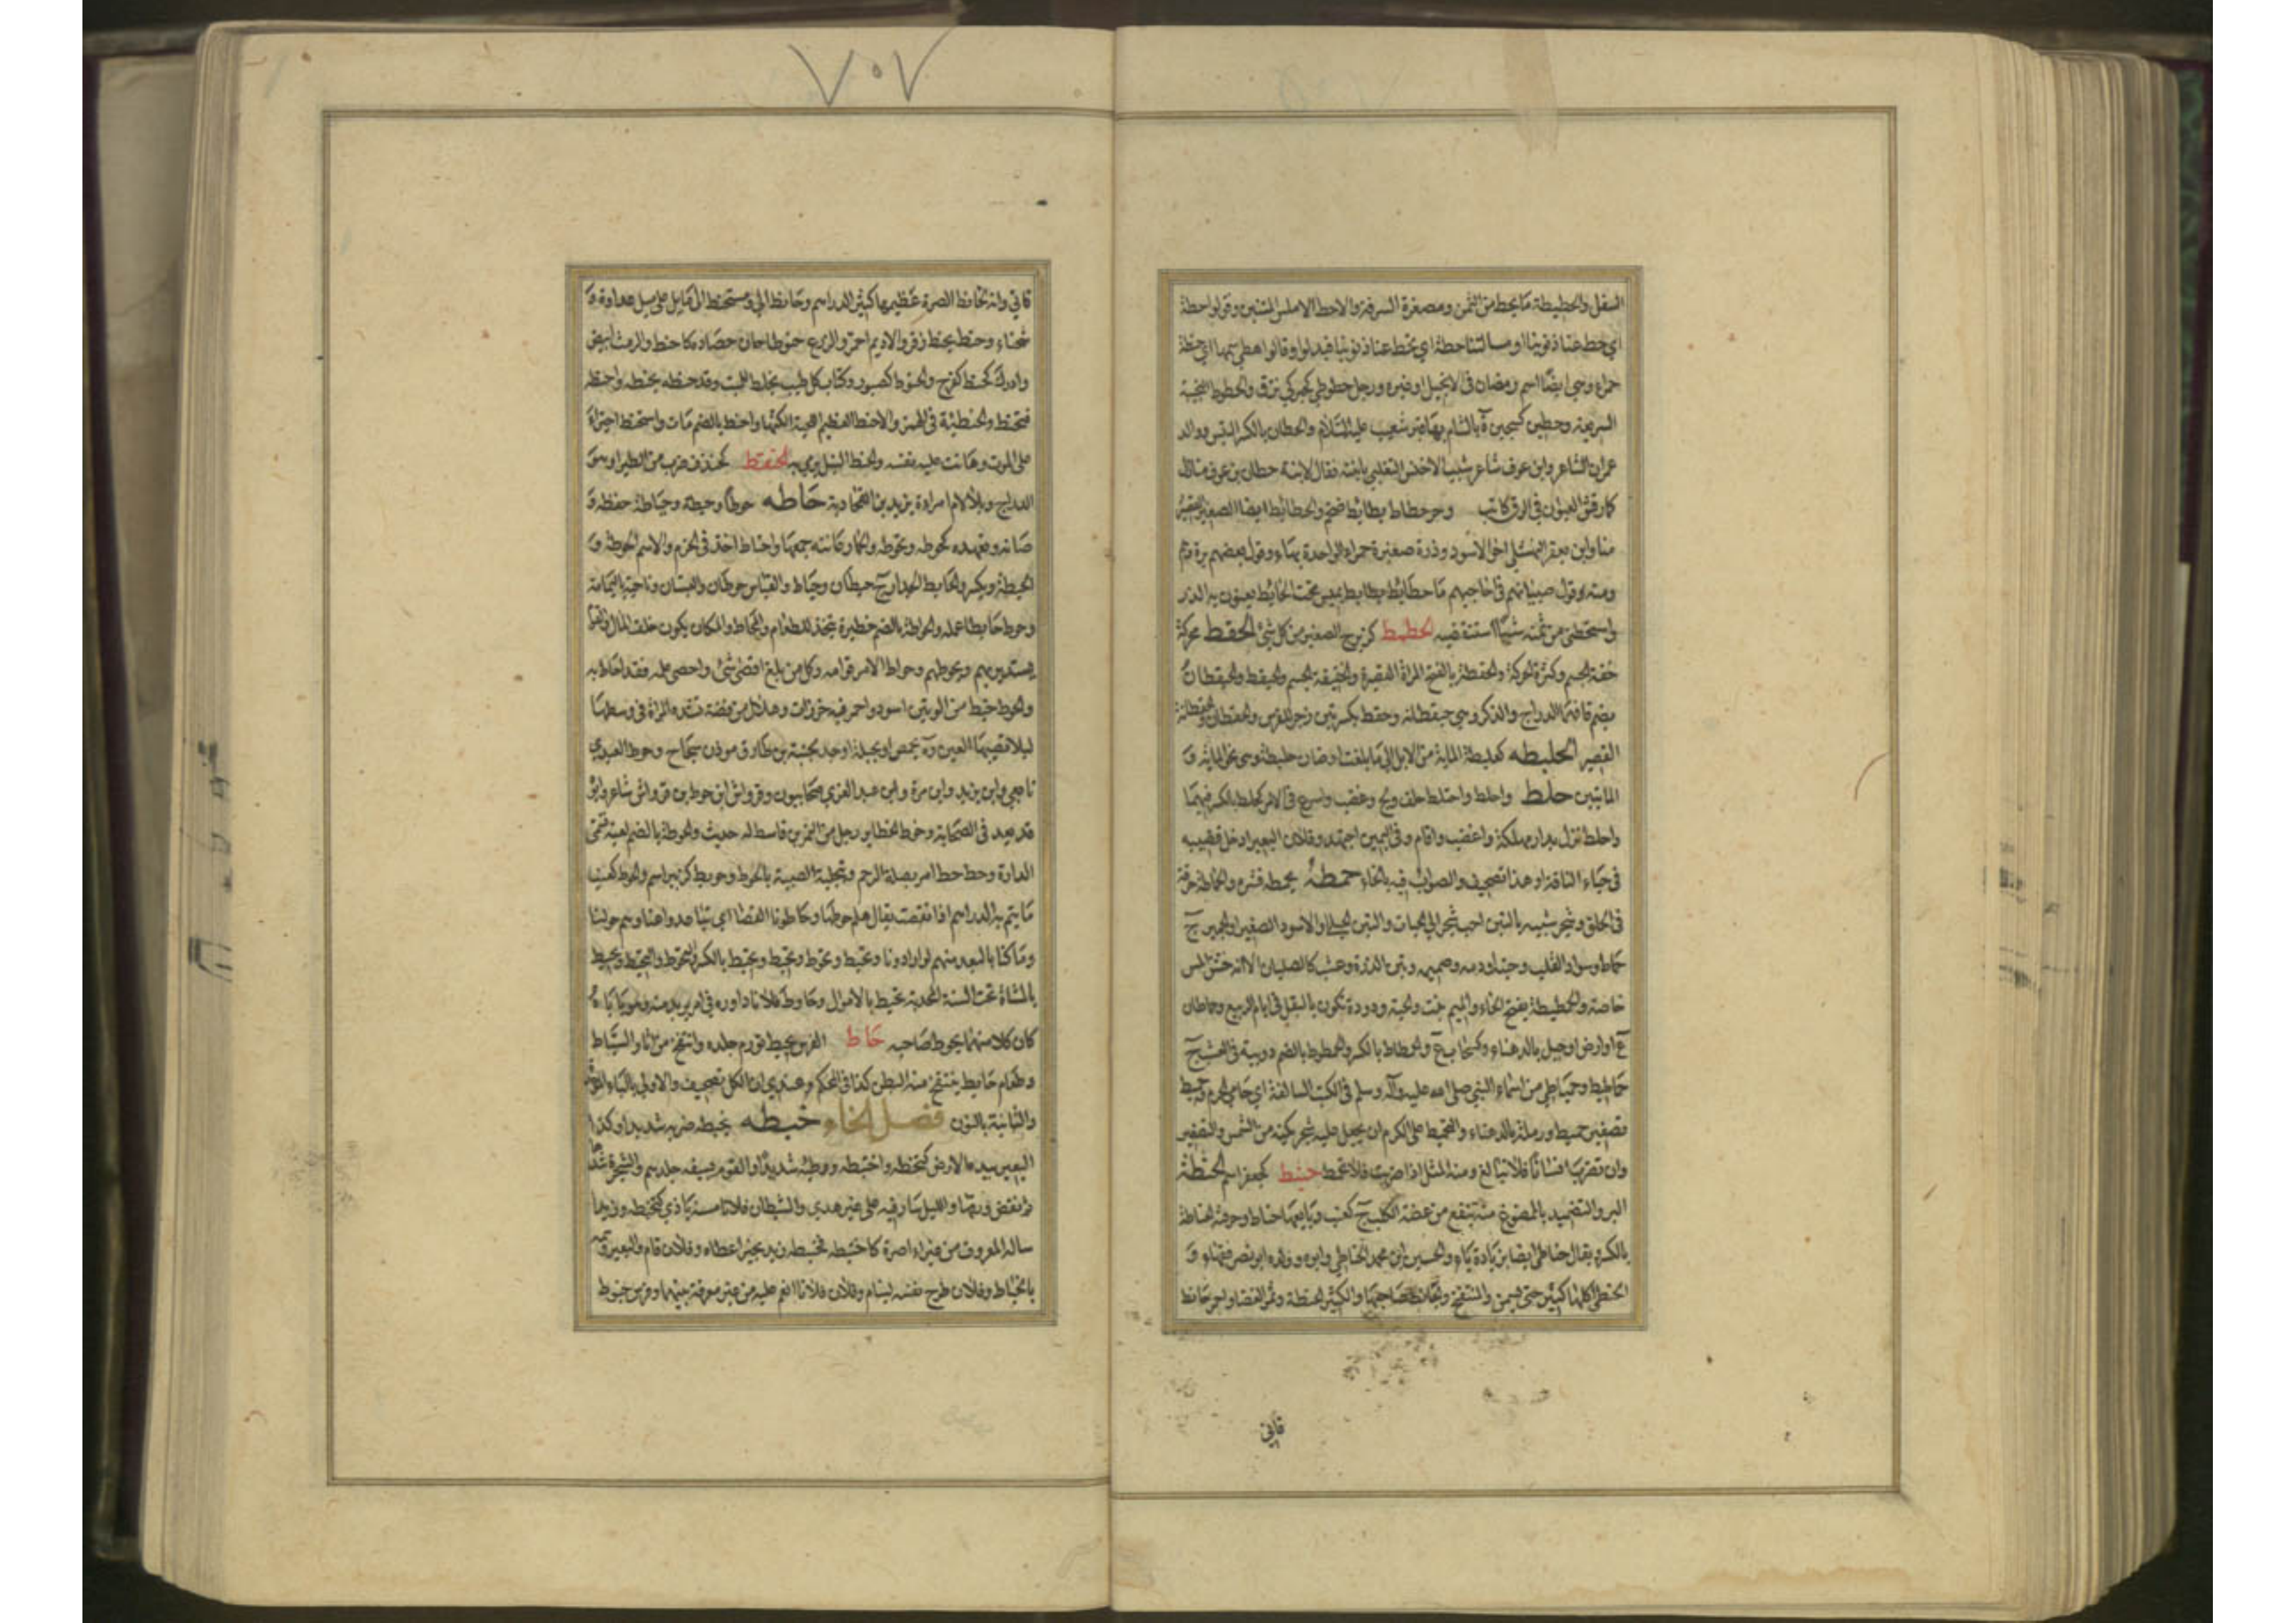 ٧٠٧
السفل والحطيطة ما يحط من الثمن ومصغرة السرفة والاحط الاملس المتنين وقولوا حطة
اي حط عنا ذنوبنا او مسالتنا حطة اي تحط عنا ذنوبنا فبدلوا وقالوا هطى سمهاثا اي حنطة
حمراء وهي ايضا اسم رمضان في الانجيل او غيره ورجل حطوطى كحبركى نزق والحطوط النجيبة
السريعة وحطين كسجين ة بالشام بها قبر شعيب عليه السلام والحطان بالكسر التيس ووالد
عمران الشاعر وابن عوف شاعر شبب الاخنس التغلبي بابنته فقال لابنة حطان بن عوف منازل
كما رقش العنوان في الرق كاتب وحر حطاط بطائط ضخم والحطائط ايضا الصغير القصير
منا وابن يعفر النهشلي اخو الاسود وذرة صغيرة حمراء الواحدة بهاء وقول بعضهم برة وهم
ومنه قول صبيانهم في احاجيهم ما حطائط بطائط تميس تحت الحائط يعنون به الذر
واستحطني من ثمنه شيئا استنقصنيه الحطمط كزبرج الصغير من كل شيء الحقط محركة
خفة الجسم وكثرة الحركة والحقطة بالفتح المراة القصيرة والخفيفة الجسم والحيقط والحيقطان
بضم قافهما الدراج والذكر وهي حيقطانة وحقط بكسرتين زجر للفرس والحقطان والحقطانة
القصير الحليطه كعلبطة المائة من الابل الى ما بلغت او ضان حلبطة وهي نحو المائة و
المائتين حلط واحلط واحتلط حلف ولج وغضب واسرع في الامر كحلط بالكسر فيهما
واحلط نزل بدار مهلكة واغضب واقام وفي اليمين اجتهد وفلان البعير ادخل قضيبه
في حياء الناقة او هذا تصحيف والصواب فيه بالخاء حمطه يحمطه قشره والحماطة حرقة
في الحلق وشجر شبيه بالتين احب شجر الى الحيات والتين الجبلي او الاسود الصغير او الجميز ج
حماط وسواد القلب وحبته او دمه وصميمه وتبن الذرة وعشب كالصليان الا انه خشن المس
خاصة والحمطيطة بفتح الحاء والميم نبت والحية ودودة تكون بالبقل في ايام الربيع وحماطان
ع او ارض او جبل بالدهناء وكسحاب ع والحمطاط بالكسر والحمطوط بالضم دويبة في العشب ج
حماطيط وحمياطى من اسماء النبي صلى الله عليه وآله وسلم في الكتب السالفة اي حامي الحرم وحميط
تصغير حميط ورملة بالدهناء والتحميط على الكرم ان يجعل عليه شجر يكنه من الشمس والتصغير
وان تضرب انسانا فلا تبالغ ومنه المثل اذا ضربت فلا تحمط حنبط كجعفر اسم الحنطة
البر والتضميد بالممضوغ منه ينفع من عضة الكلب ج كعنب وبايعها حناط وحرفته الحناطة
بالكسر ويقال حناطي ايضا بزيادة ياء والحسين ابن محمد الحناطي وابوه وولده ابو نصر فقهاء و
الحنطي اكلها كثيرا حتى يسمن والمنتفخ والحانط صاحبها والكثير الحنطة وثمر الغضا واحمر حانط
قاني
قاني وانه لحانط الصرة عظيمها كثير الدراهم وحانط الي ومستحنط الي مايل علي ميل عداوة و
شحناء وحنط يحنط زفر والاديم احمر والزرع حنوطا حان حصاده كاحنط والرمث ابيض
وادرك كحنط كفرح والحنوط كصبور وكتاب كل طيب يخلط للميت وقد حنطه يحنطه واحنطه
فتحنط والحنطئة في الهمز والاحنط العظيم اللحية الكثها واحنط بالضم مات واستحنط اجترأ
على الموت وهانت عليه نفسه والحنط النبل يرمى به الحنقط كخندف ضرب من الطير او هو
الدراج وبلا لام امراة يزيد بن القحادية حاطه حوطا وحيطة وحياطة حفظه و
صانه وتعهده كحوطه وتحوطه والحمار عانته جمعها واحتاط اخذ في الحزم والاسم الحوطة و
الحيطة ويكسر والحايط الجدار ج حيطان وحياط والقياس حوطان والبستان وناحية باليمامة
وحوط حايطا عمله والحواطة بالضم حظيرة تتخذ للطعام والمحاط المكان يكون خلف المال والقوم
يستدير بهم ويحوطهم وحواط الامر قوامه وكل من بلغ اقصى شيء واحصى علمه فقد احاط به
والحوط خيط من لونين اسود واحمر فيه خرزات وهلال من فضة تشده المراة في وسطها
ليلا تصيبها العين وة بحمص او بجبلة او حد بجنبة بن طارق موذن سجاح وحوط العبدي
تابعي وابن يزيد وابن مرة وابن عبد العزى صحابيون وقرواش ابن حوط بن قرواش شاعر وابو
قد يعد في الصحابة وحوط الحظائر رجل من النمر بن قاسط له حديث والحوطة بالضم لعبة تسمى
الدارة وحط حط امر بصلة الرحم وبتحلية الصبية بالحوط وحويط كزبير اسم والحوط كعنب
ما يتم به الدراهم اذا نقصت يقال هلم حوطها وحاطونا القصا اي تباعدوا عنا وهم حولنا
وما كنا بالبعد منهم لو ارادونا وتحيط وتحوط وتحيط ويحيط بالكسر والتحوط والتحيط ويحيط
بالمثناة تحت السنة المجدبة تحيط بالاموال وحاوط فلانا داوره في امر يريده منه وهو ياباه
كان كلا منهما يحوط صاحبه حاط الفرس يحيط تورم جلده وانتفخ من اثار السياط
وطعام حايط ينتفخ منه البطن كذا في المحكم وعندي ان الكل تصحيف والاولى بالباء الموحدة
والثانية بالنون فصل الخاء خبطه يخبطه ضربه شديدا وكذا
البعير بيده الارض كتخبطه واختبطه ووطئه شديدا والقوم بسيفه جلدهم والشجرة شدها
ثم نفض ورقها والليل سار فيه على غير هدى والشيطان فلانا مسه باذى كتخبطه وزيدا
ساله المعروف من غير اصرة كاختبطه فخبطه زيد بخير اعطاه وفلان قام والبعير وسمه
بالخباط وفلان طرح نفسه لينام وفلان فلانا انعم عليه من غير معرفة بينهما وفرس خبوط